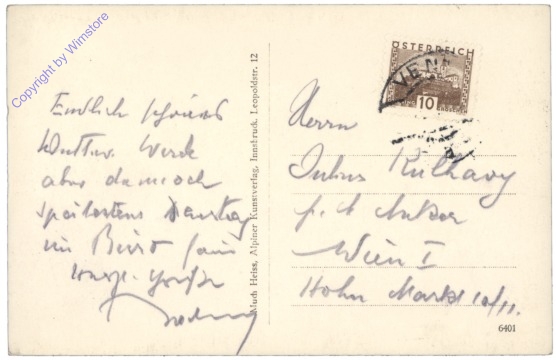 Copyright by Wimstore
Endlich schönes
Wetter. Werde
aber dennoch
spätestens Dienstag
im Büro sein
Much Heiss, Alpiner Kunstverlag, Innsbruck, Leopoldstr. 12
ÖSTERREICH
10
VEN
Herrn
Julius Kulhavy
Wien I
Hoher Markt 10/11.
6401